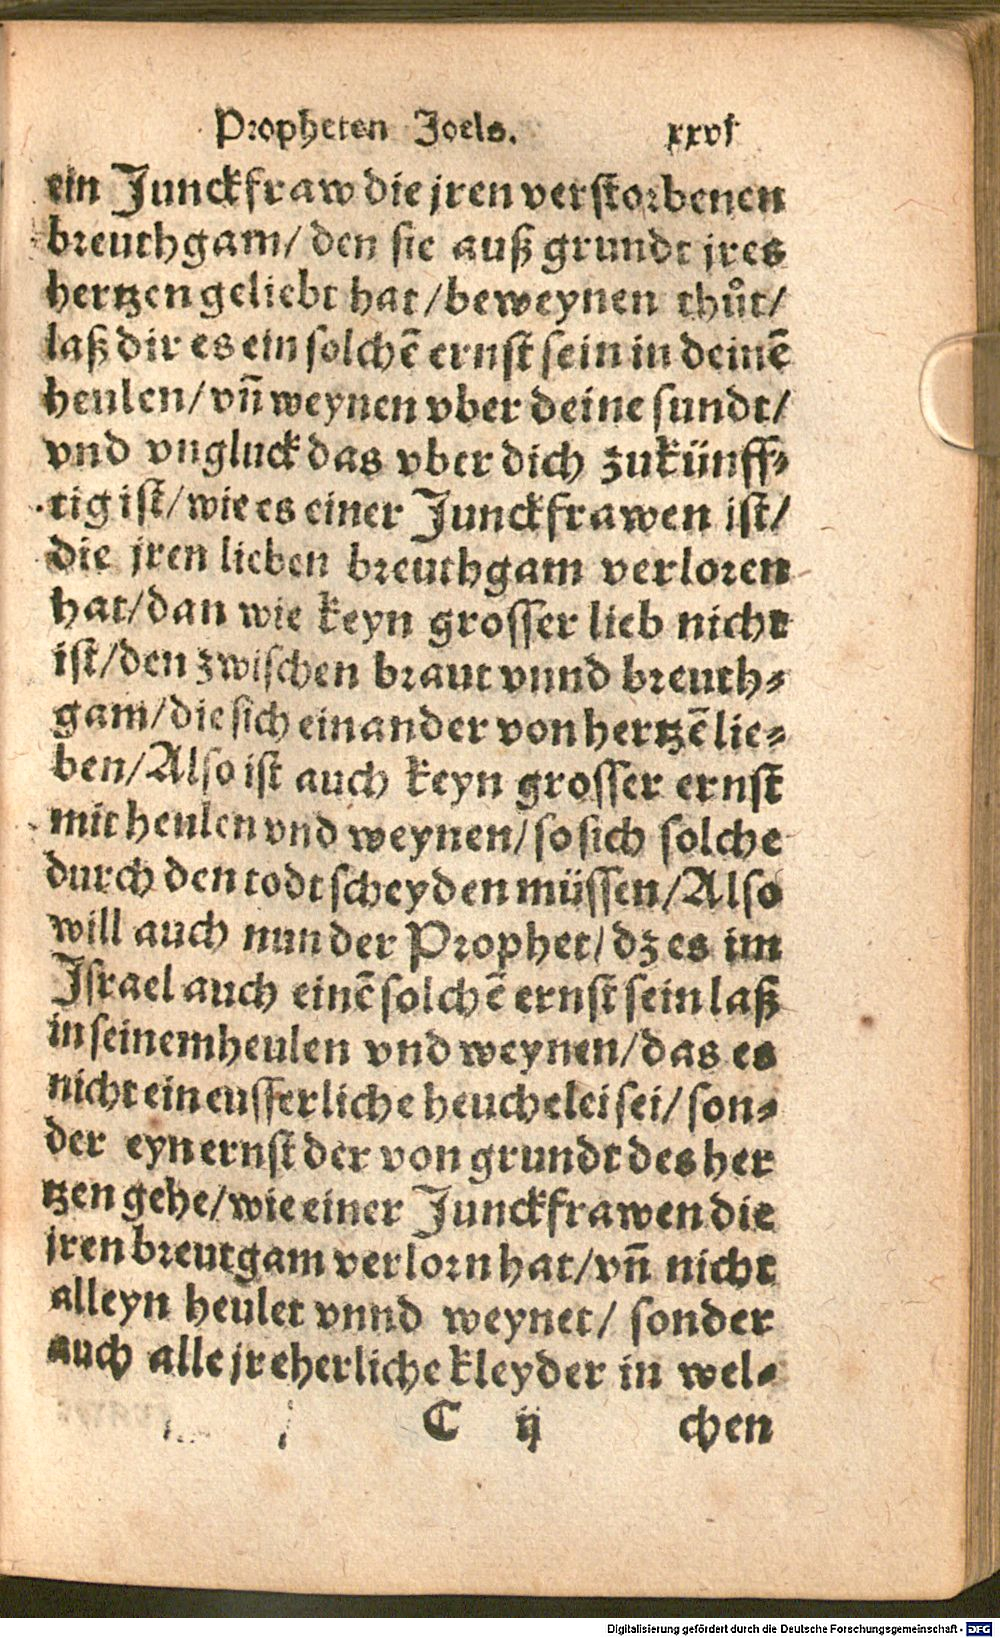 Propheten Joels. xxvj
ein Junckfraw die jren verstorbenen
breuthgam/ den sie auß grundt jres
hertzen geliebt hat/beweynen thůt/
laß dir es ein solchē ernst sein in deinē
heulen/vñ weynen vber deine sundt/
vnd vngluck das vber dich zukünff-
tig ist/wie es einer Junckfrawen ist/
die jren lieben breuthgam verloren
hat/dan wie keyn grosser lieb nicht
ist/den zwischen braut vnnd breuth-
gam/die sich einander von hertzē lie-
ben/Also ist auch keyn grosser ernst
mit heulen vnd weynen/so sich solche
durch den todt scheyden müssen/Also
will auch nun der Prophet/dz es im
Israel auch einē solchē ernst sein laß
in seinem heulen vnd weynen/das es
nicht ein eusserliche heuchelei sei/son-
der eyn ernst der von grundt des her
tzen gehe/wie einer Junckfrawen die
jren breutgam verlorn hat/vñ nicht
alleyn heulet vnnd weynet/ sonder
auch alle jre herliche kleyder in wel-
C ij chen
Digitalisierung gefördert durch die Deutsche Forschungsgemeinschaft - DFG